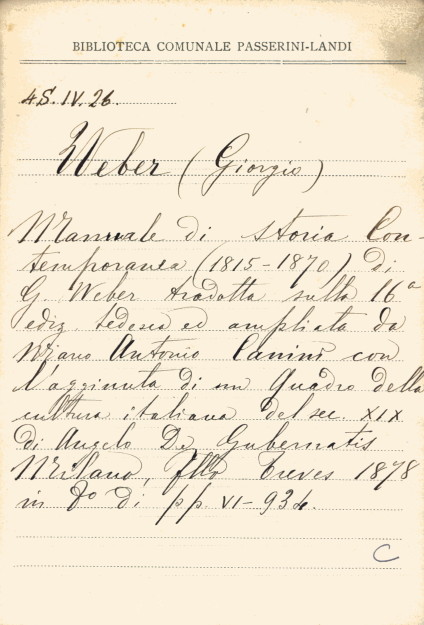 BIBLIOTECA COMUNALE PASSERINI-LANDI
4S.IV.26.
Weber (Giorgio)
Manuale di storia Con-
temporanea (1815-1870) di
G. Weber tradotta sulla 16ª
ediz. tedesca ed ampliata da
Marco Antonio Canini con
l'aggiunta di un Quadro della
cultura italiana del sec. XIX
di Angelo De Gubernatis
Milano, flli Treves 1878
in 8º di pp. VI-934.
C